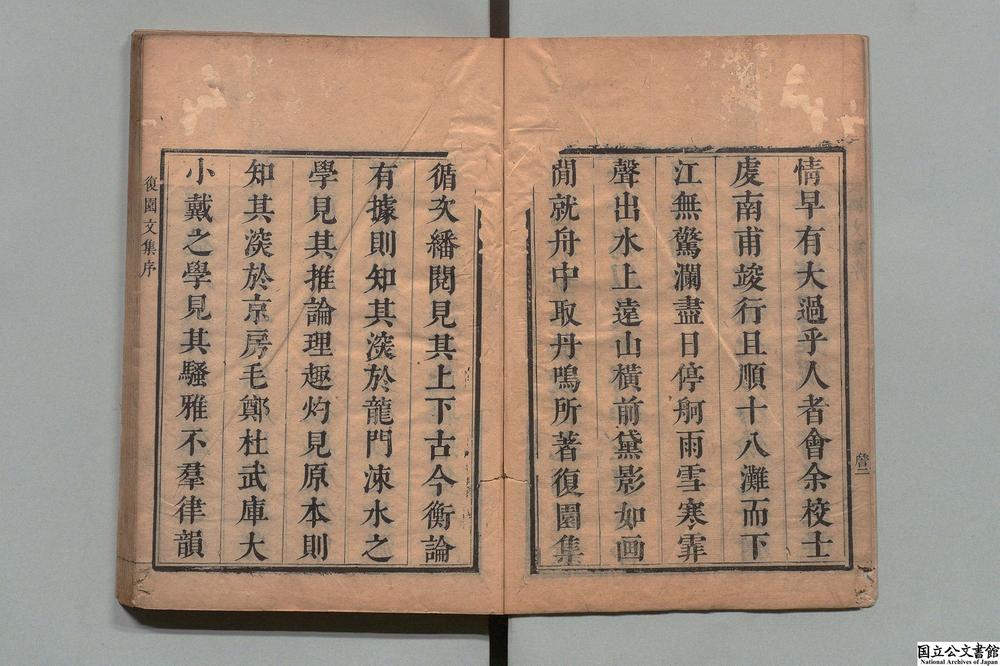 情早有大過乎人者會余校士
虔南甫竣行且順十八灘而下
江無驚瀾盡日停舸雨雪寒霏
聲出水上遠山橫前黛影如画
閒就舟中取丹鳴所著復園集
循次繙閱見其上下古今衡論
有據則知其深於龍門涑水之
學見其推論理趣灼見原本則
知其深於京房毛鄭杜武庫大
小戴之學見其騷雅不羣律韻
復園文集序
国立公文書館
National Archives of Japan